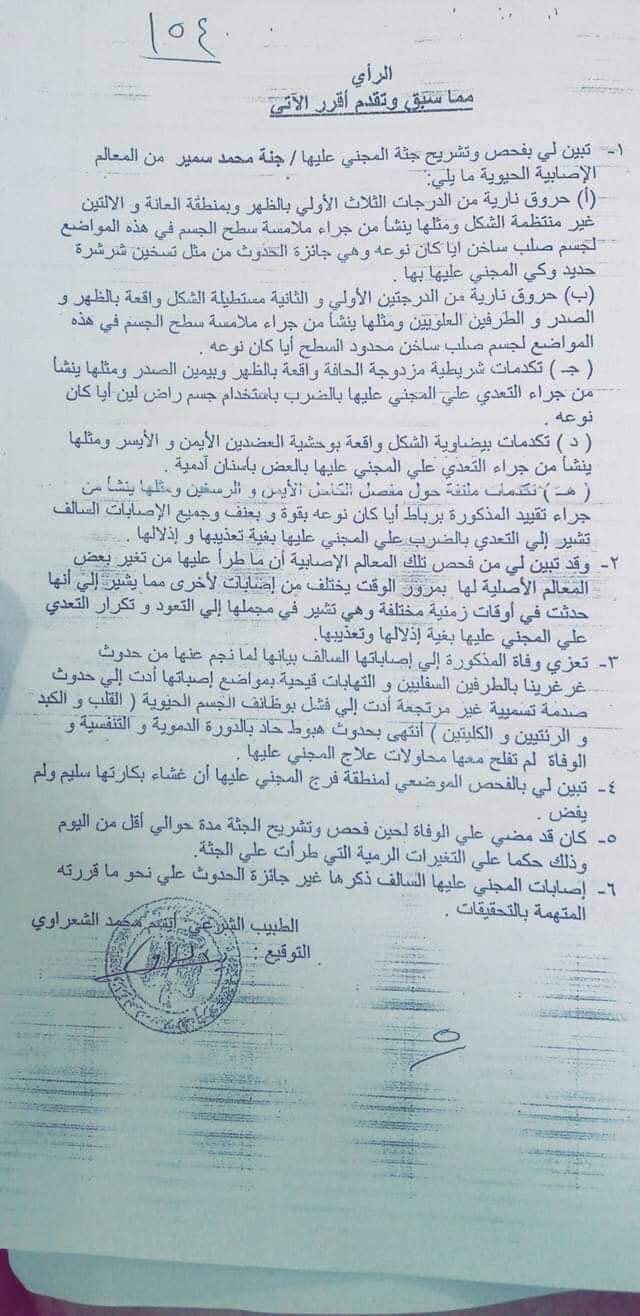 ١٥٤
الرأي
مما سبق وتقدم أقرر الآتي
١- تبين لي بفحص وتشريح جثة المجني عليها / جنة محمد سمير من المعالم
الإصابية الحيوية ما يلي:
(أ) حروق نارية من الدرجات الثلاث الأولي بالظهر وبمنطقة العانة و الالتين
غير منتظمة الشكل ومثلها ينشأ من جراء ملامسة سطح الجسم في هذه المواضع
لجسم صلب ساخن ايا كان نوعه وهي جائزة الحدوث من مثل تسخين شرشرة
حديد وكي المجني عليها بها .
(ب) حروق نارية من الدرجتين الأولي و الثانية مستطيلة الشكل واقعة بالظهر و
الصدر و الطرفين العلويين ومثلها ينشأ من جراء ملامسة سطح الجسم في هذه
المواضع لجسم صلب ساخن محدود السطح أيا كان نوعه .
( جـ ) تكدمات شريطية مزدوجة الحافة واقعة بالظهر وبيمين الصدر ومثلها ينشأ
من جراء التعدي علي المجني عليها بالضرب باستخدام جسم راض لين أيا كان
نوعه .
( د ) تكدمات بيضاوية الشكل واقعة بوحشية العضدين الأيمن و الأيسر ومثلها
ينشأ من جراء التعدي علي المجني عليها بالعض باسنان آدمية .
( هـ ) تكدمات ملتفة حول مفصل الكاحل الأيمن و الرسغين ومثلها ينشأ من
جراء تقييد المذكورة برباط أيا كان نوعه بقوة و بعنف وجميع الإصابات السالف
تشير إلي التعدي بالضرب علي المجني عليها بغية تعذيبها و إذلالها .
٢- وقد تبين لي من فحص تلك المعالم الإصابية أن ما طرأ عليها من تغير بعض
المعالم الأصلية لها بمرور الوقت يختلف من إصابات لأخرى مما يشير إلي أنها
حدثت في أوقات زمنية مختلفة وهي تشير في مجملها إلي التعود و تكرار التعدي
علي المجني عليها بغية إذلالها وتعذيبها.
٣- تعزي وفاة المذكورة إلي إصاباتها السالف بيانها لما نجم عنها من حدوث
غرغرينا بالطرفين السفليين و التهابات قيحية بمواضع إصباتها أدت إلي حدوث
صدمة تسممية غير مرتجعة أدت إلي فشل بوظائف الجسم الحيوية ( القلب و الكبد
و الرئتيين و الكليتين ) أنتهى بحدوث هبوط حاد بالدورة الدموية و التنفسية و
الوفاة لم تفلح معها محاولات علاج المجني عليها .
٤- تبين لي بالفحص الموضعي لمنطقة فرج المجني عليها أن غشاء بكارتها سليم ولم
يفض .
٥- كان قد مضي علي الوفاة لحين فحص وتشريح الجثة مدة حوالي أقل من اليوم
وذلك حكما علي التغيرات الرمية التي طرأت علي الجثة.
٦- إصابات المجني عليها السالف ذكرها غير جائزة الحدوث علي نحو ما قررته
المتهمة بالتحقيقات .
الطبيب الشرعي محمد الشعراوي
التوقيع :
٥